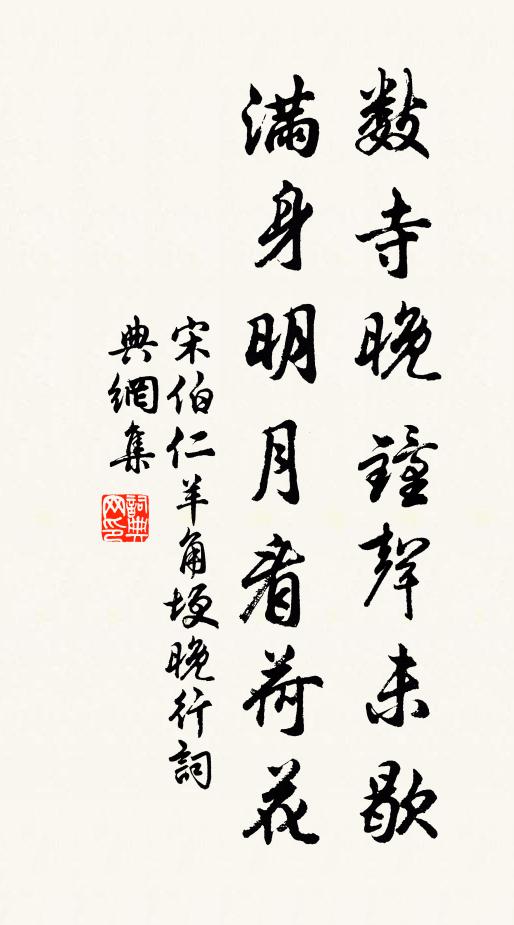 數寺晚鐘聲未歇
滿身明月看荷花
宋伯仁羊角埂晚行詞
典網集
詞典網印